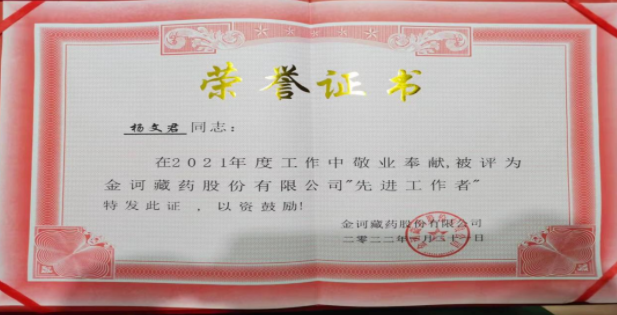 荣誉证书
杨文君 同志：
在2021年度工作中敬业奉献,被评为
金诃藏药股份有限公司"先进工作者"
特发此证 , 以资鼓励!
金诃藏药股份有限公司
二零二二年 月 十 日